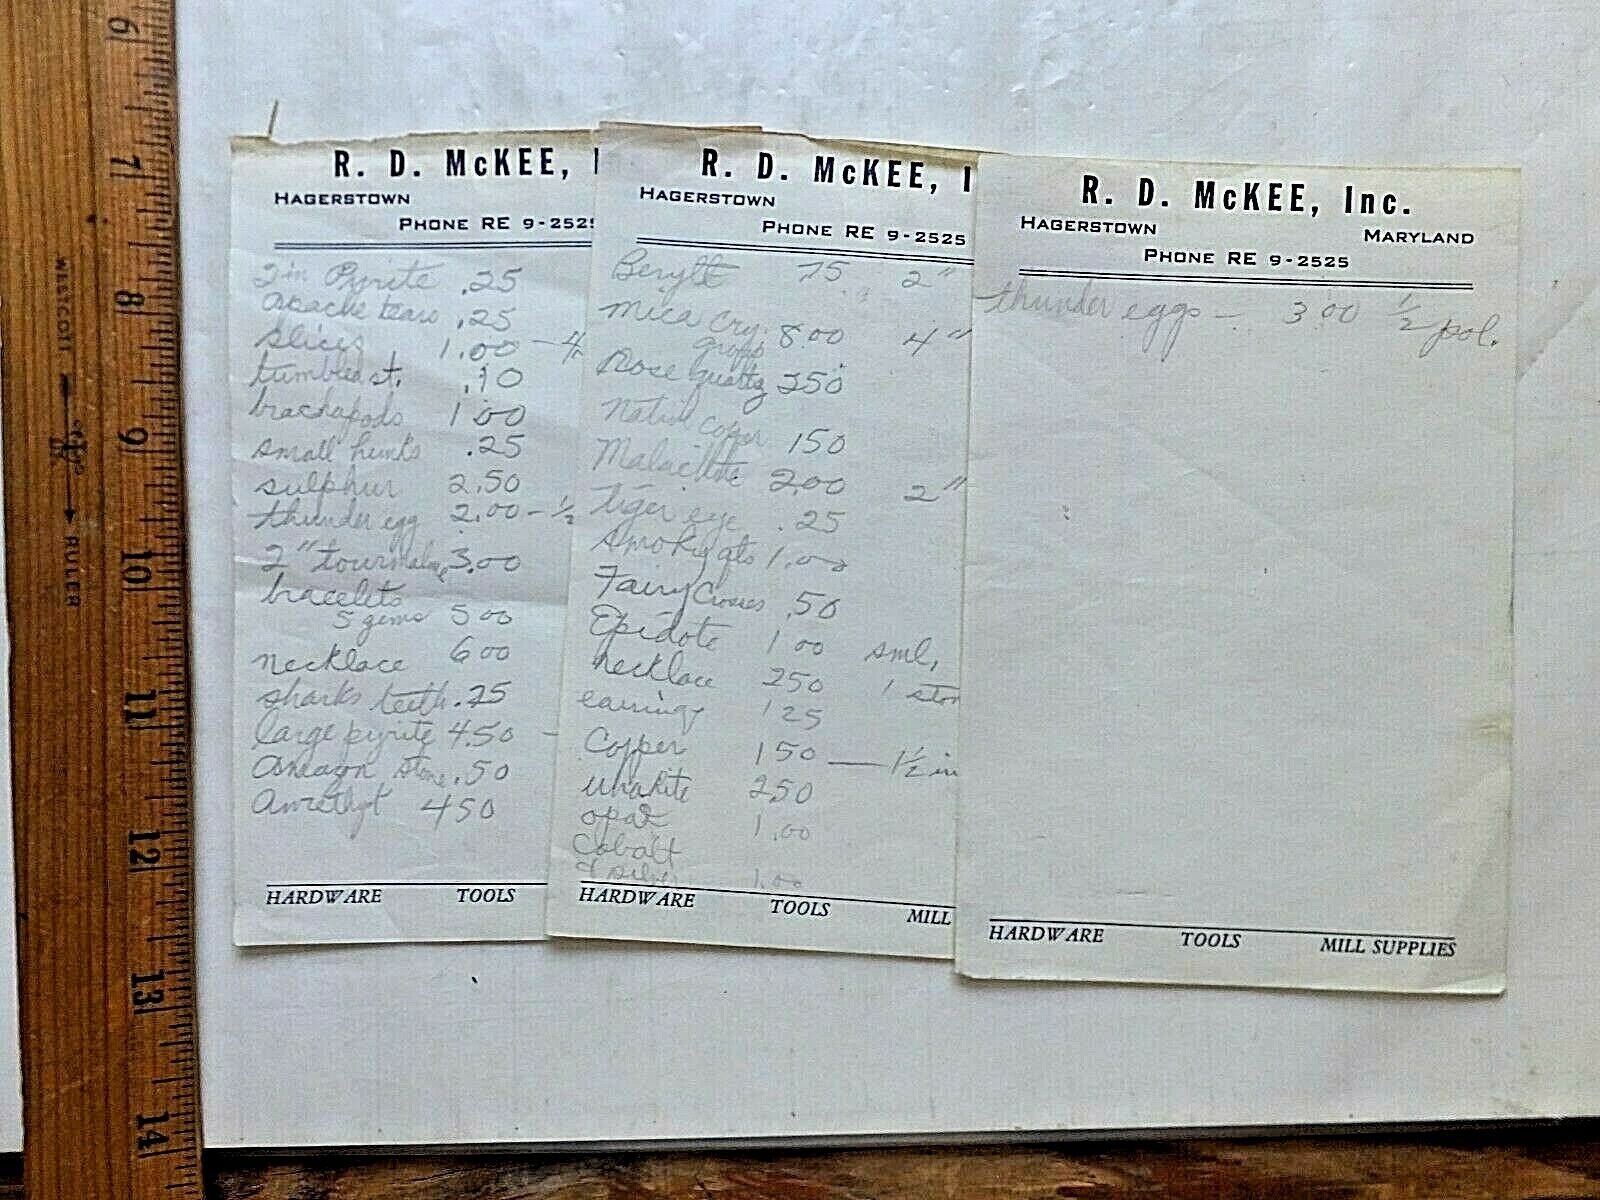 6
7
8
9
10
11
12
13
14
WESTCOTT
RULER
R. D. McKEE, I
HAGERSTOWN
PHONE RE 9-252
2 in Pyrite .25
apache tears .25
slices 1.00 - 4
tumbled st. .10
brachapods 1 00
small hunks .25
sulphur 2.50
thunder egg 2.00 - 1/2
2" tourmaline 3.00
bracelets
5 gems 5 00
necklace 6 00
sharks teeth .25
large pyrite 4.50 -
Amazon stone .50
Amethyst 4 50
HARDWARE TOOLS
R. D. McKEE, I
HAGERSTOWN
PHONE RE 9-2525
Beryl 75 2"
mica cry. 8.00 4"
group
Rose quartz 250
Native Copper 150
Malachite 2.00 2"
tiger eye .25
smoky qts 1.00
Fairy Crosses .50
Epidote 1 00 sml.
necklace 250 1 ston
earrings 125
Copper 150 — 1 1/2 in
Unakite 250
opal 1.00
Cobalt
& silver 1.00
HARDWARE TOOLS MILL
R. D. McKEE, Inc.
HAGERSTOWN MARYLAND
PHONE RE 9-2525
thunder eggs - 3 00 1/2 pol.
HARDWARE TOOLS MILL SUPPLIES